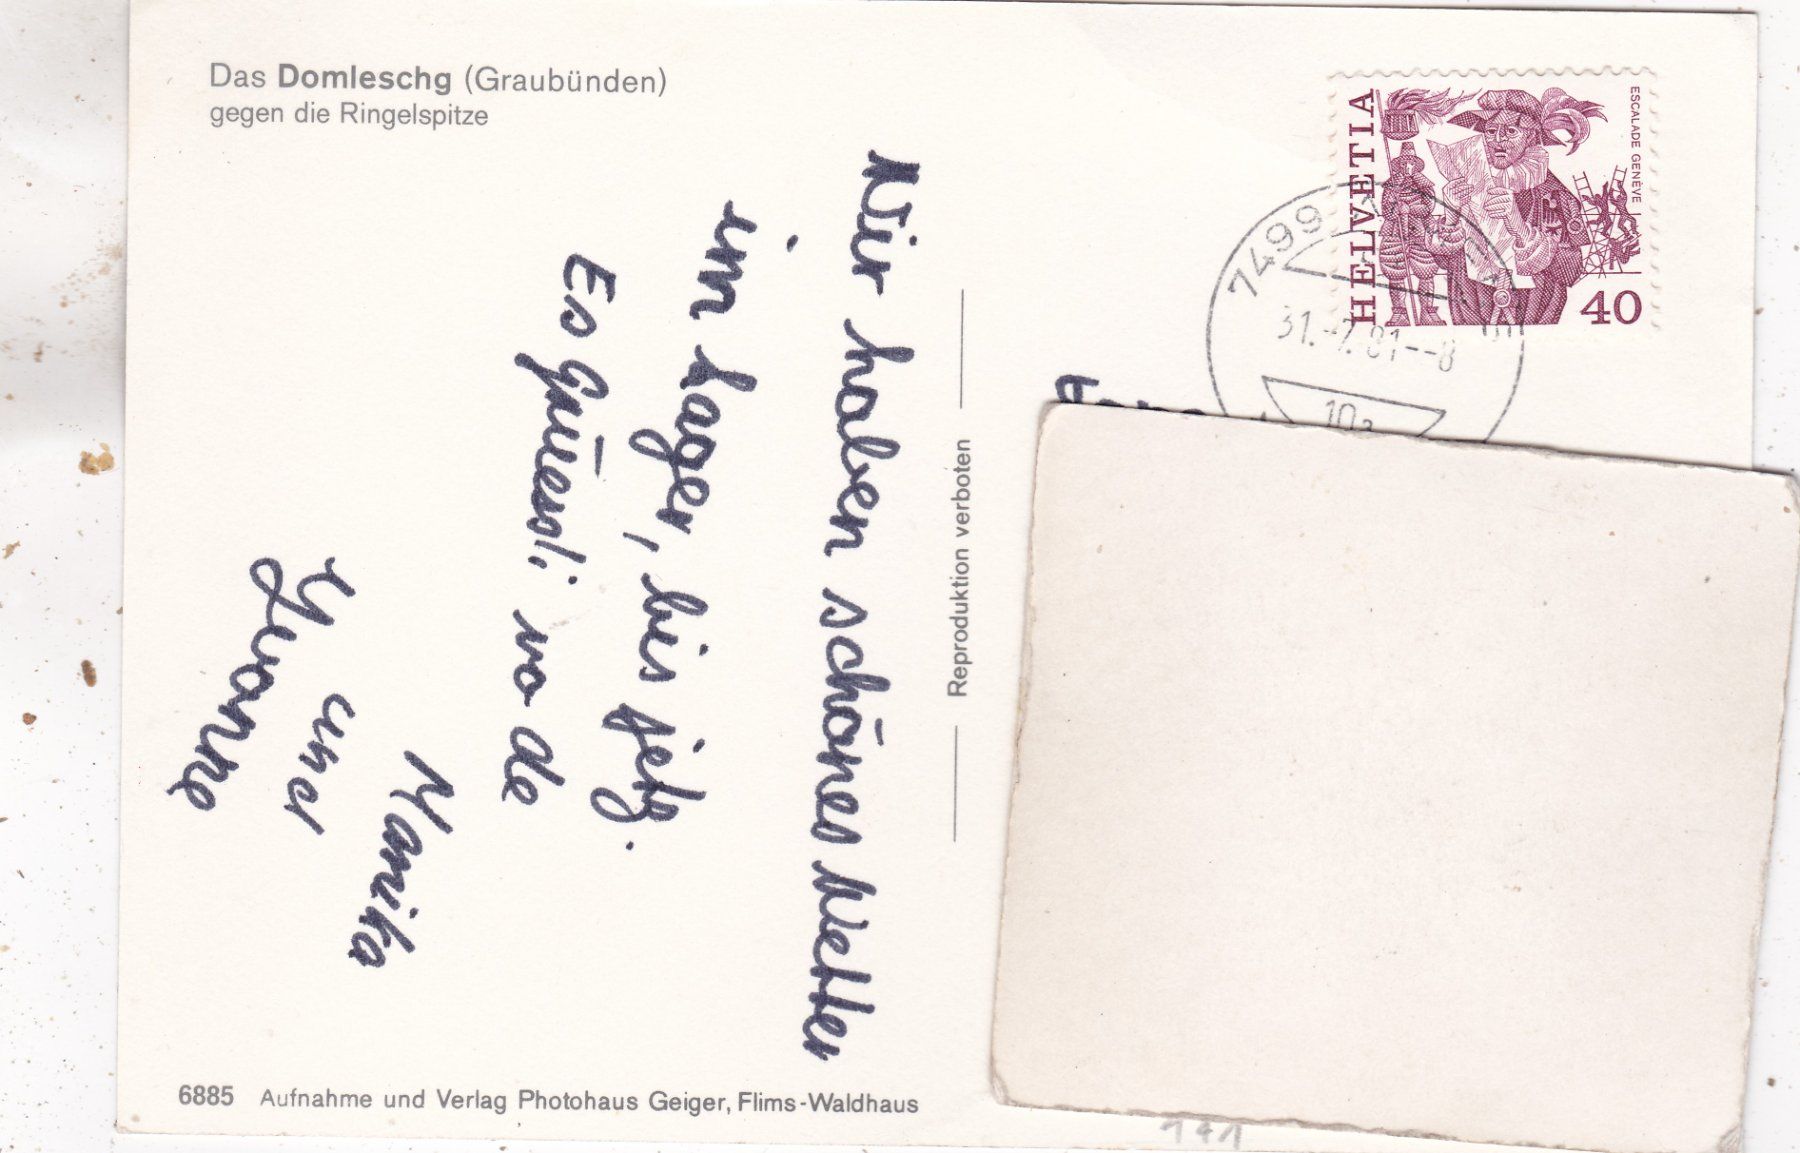 Das Domleschg (Graubünden)
gegen die Ringelspitze
Wir haben schönes Wetter
im Lager, bis jetz.
Es Grüessli vo de
Marika
und
Yvonne
Reproduktion verboten
6885 Aufnahme und Verlag Photohaus Geiger, Flims-Waldhaus
HELVETIA
ESCALADE GENÈVE
40
7499
31.-7.81--8
10a
141